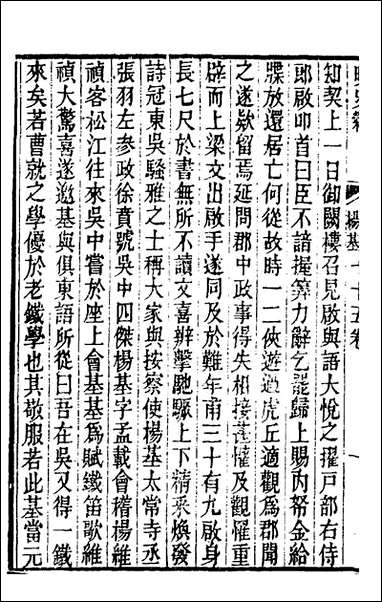 知契上一日御闕樓召見啟與語大悅之擢戶部右侍
郎啟叩首曰臣不諳握筭力辭乞罷歸上賜內帑金給
牒放還居亡何從故時一二俠遊過虎丘適觀爲郡聞
之遂欵留焉延問郡中政事得失相接甚懽及觀罹重
辟而上梁文出啟手遂同及於難年甫三十有九啟身
長七尺於書無所不讀文喜辨擊馳驟上下精采煥發
詩冠東吳騷雅之士稱大家與按察使楊基太常寺丞
張羽左參政徐賁號吳中四傑楊基字孟載會稽楊維
禎客松江往來吳中嘗於座上會基基爲賦鐵笛歌維
禎大驚喜遂邀基與俱東語所從曰吾在吳又得一鐵
來矣若曹就之學優於老鐵學也其敬服若此基當元
楊基 十五卷